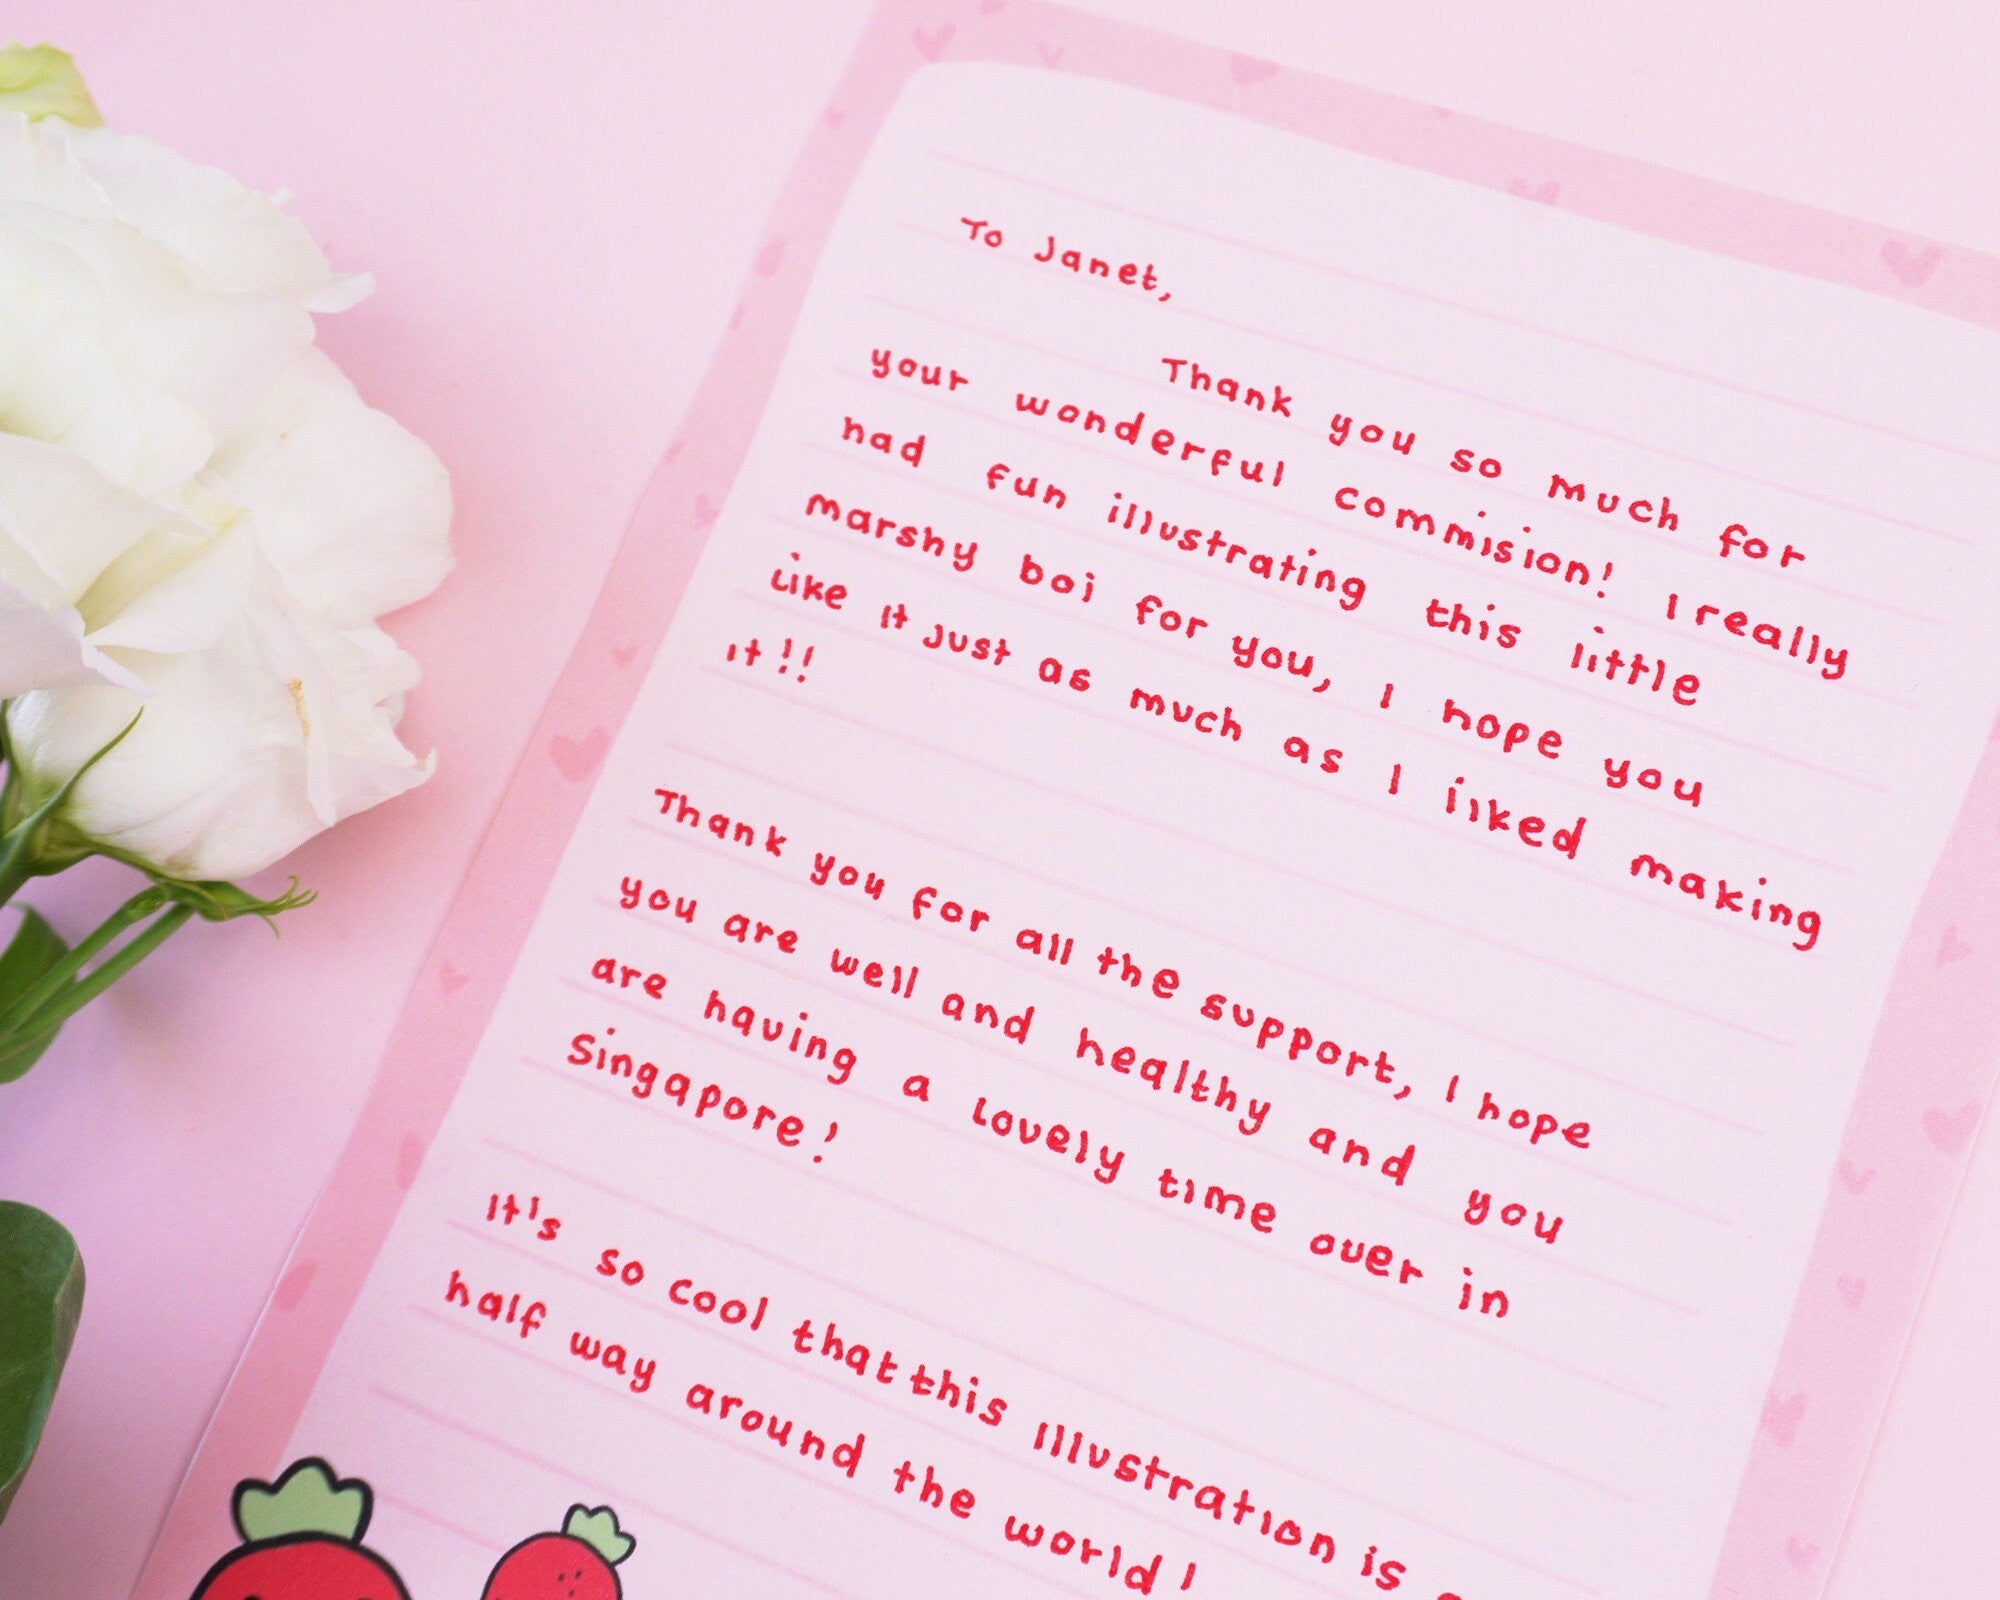 To Janet,
Thank you so much for
your wonderful commision! I really
had fun illustrating this little
marshy boi for you, I hope you
Like it just as much as I liked making
it!!
Thank you for all the support, I hope
you are well and healthy and you
are having a Lovely time over in
Singapore!
It's so cool that this illustration is
half way around the world!